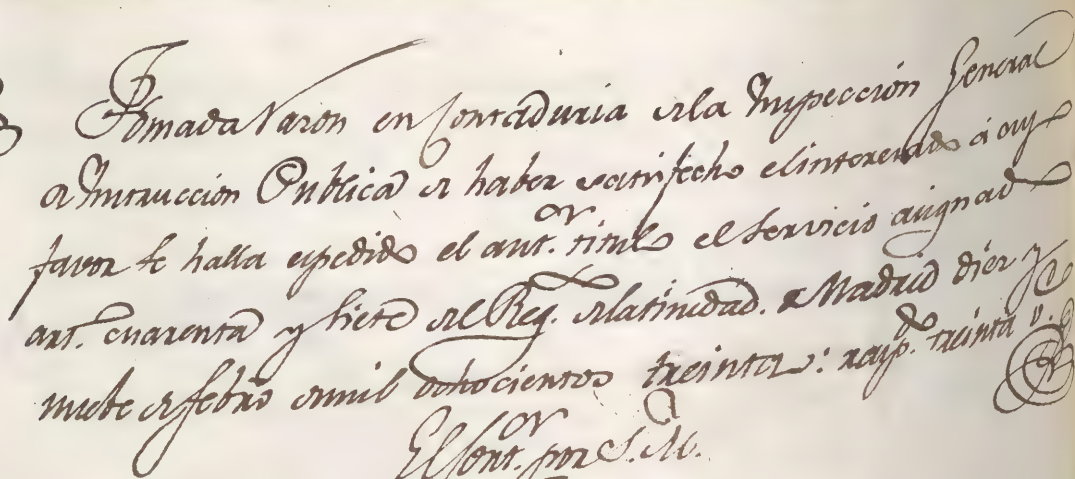 Tomada Razon en Contaduria de la Inspeccion General
de Instruccion Publica de haber satisfecho el interesado á cuyo
favor se halla espedido el ant.or titulo el servicio asignado
art. cuarenta y siete del Reg.to de latinidad. Madrid diez y
nuebe de febro de mil ochocientos treinta: treinta
El Cont.or por S. M.